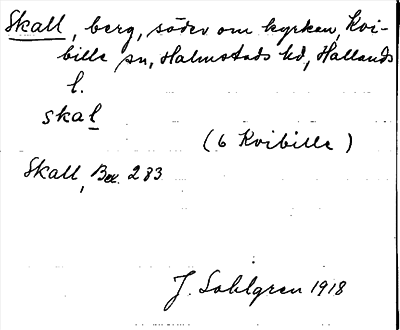 Skall, berg, söder om kyrkan, Kvi-
bille sn, Halmstads hd, Hallands
l.
skal
(6 Kvibille)
Skall, Bex. 283
J. Sahlgren 1918